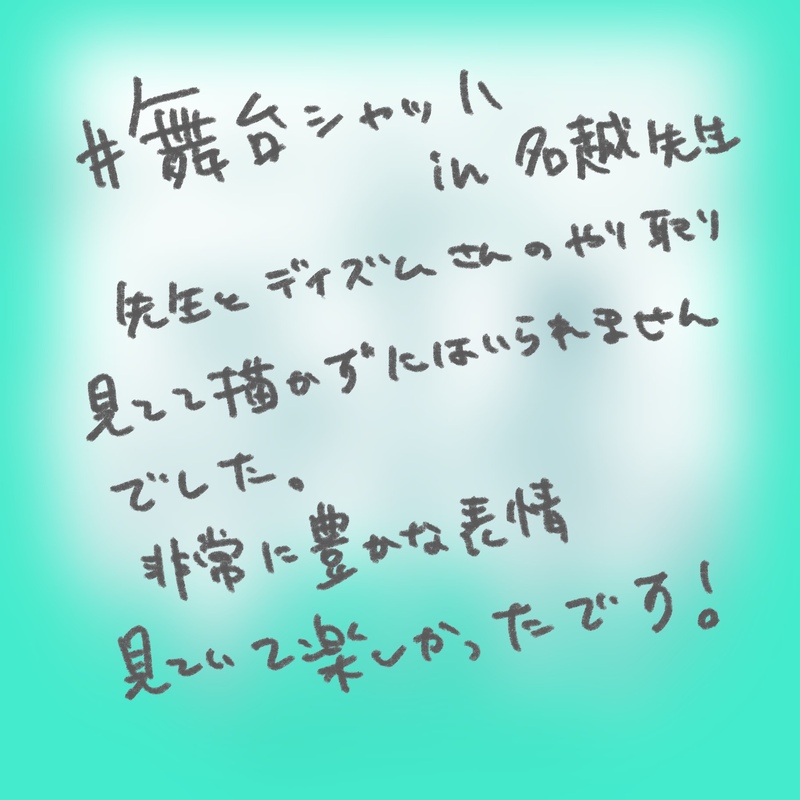 #舞台シャッハ
in 名越先生
先生とディズムさんのやり取り
見てて描かずにはいられません
でした。
非常に豊かな表情
見ていて楽しかったです!